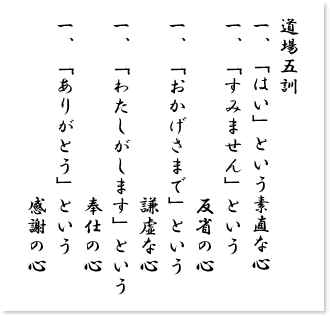 道場五訓
一、「はい」という素直な心
一、「すみません」という
反省の心
一、「おかげさまで」という
謙虚な心
一、「わたしがします」という
奉仕の心
一、「ありがとう」という
感謝の心